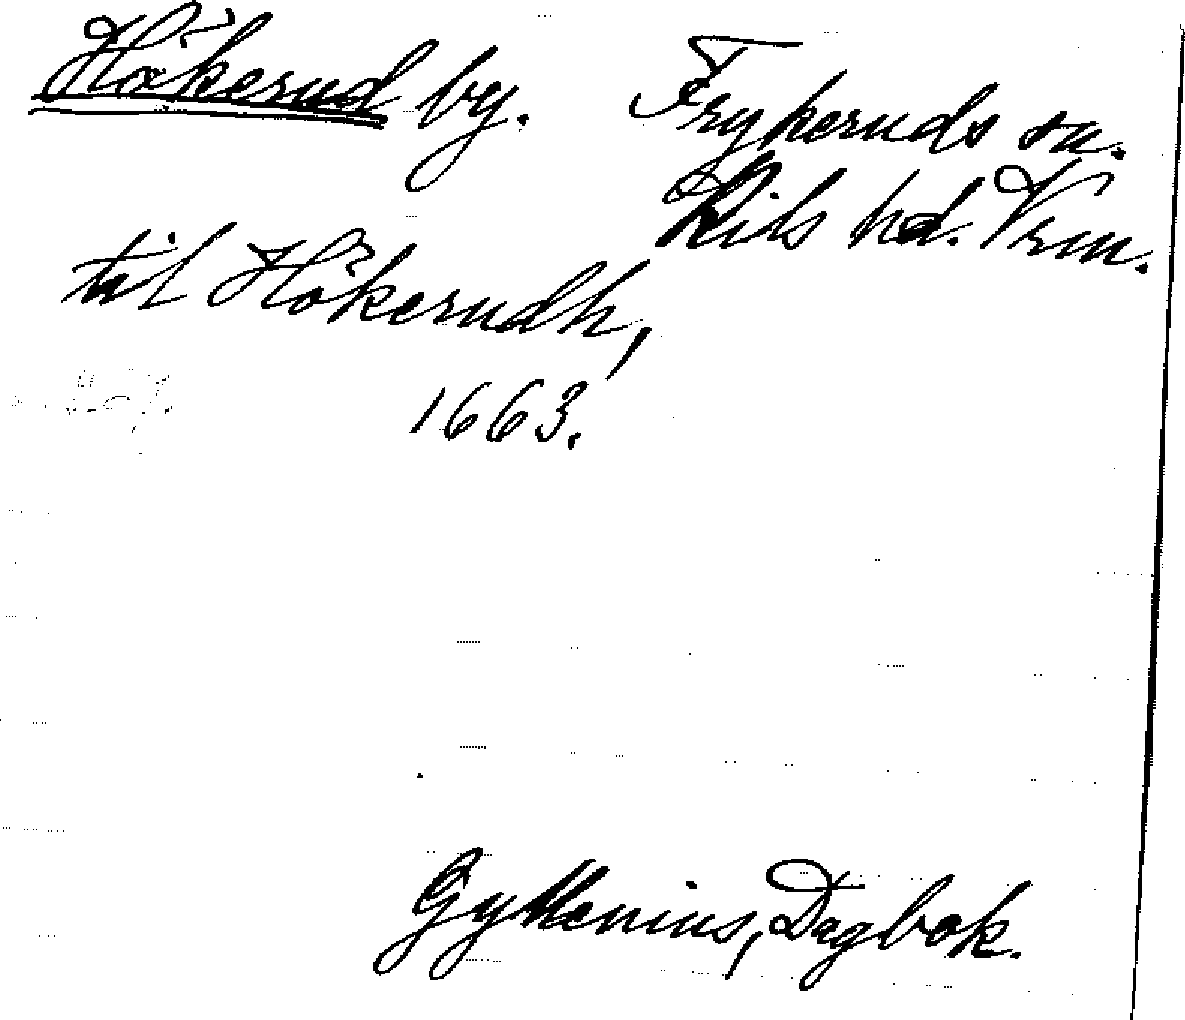 Hökerud by. Frykeruds sn.
Kils hd. Vrm.
til Hökerudh,
1663.
Gyllenius, Dagbok.